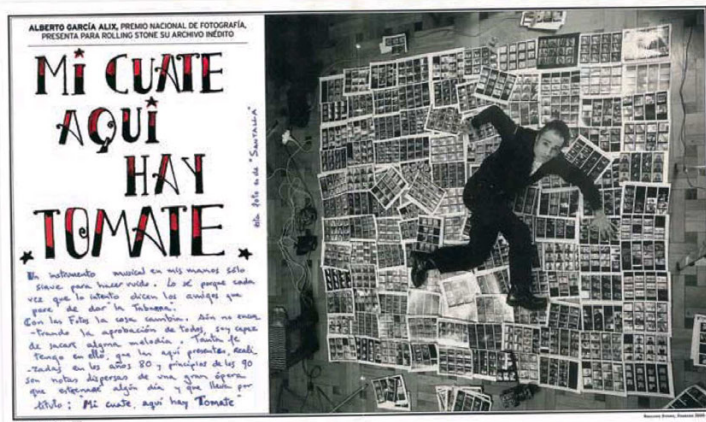 ALBERTO GARCÍA ALIX, PREMIO NACIONAL DE FOTOGRAFÍA,
PRESENTA PARA ROLLING STONE SU ARCHIVO INÉDITO
MI CUATE
AQUI
HAY
TOMATE
Un instrumento musical en mis manos sólo
sirve para hacer ruido. Lo sé porque cada
vez que lo intento dicen los amigos que
pare de dar la tabarra.
Con las Fotos la cosa cambia. Aún no encon
-trando la aprobación de todos, soy capaz
de sacar alguna melodía. Tanta fe
tengo en ello, que las aquí presentes, reali
-zadas en los años 80 y principios de los 90
son notas dispersas de una gran ópera
que estrenaré algún día y que lleva por
título: Mi cuate, aquí hay Tomate"
esta foto es de